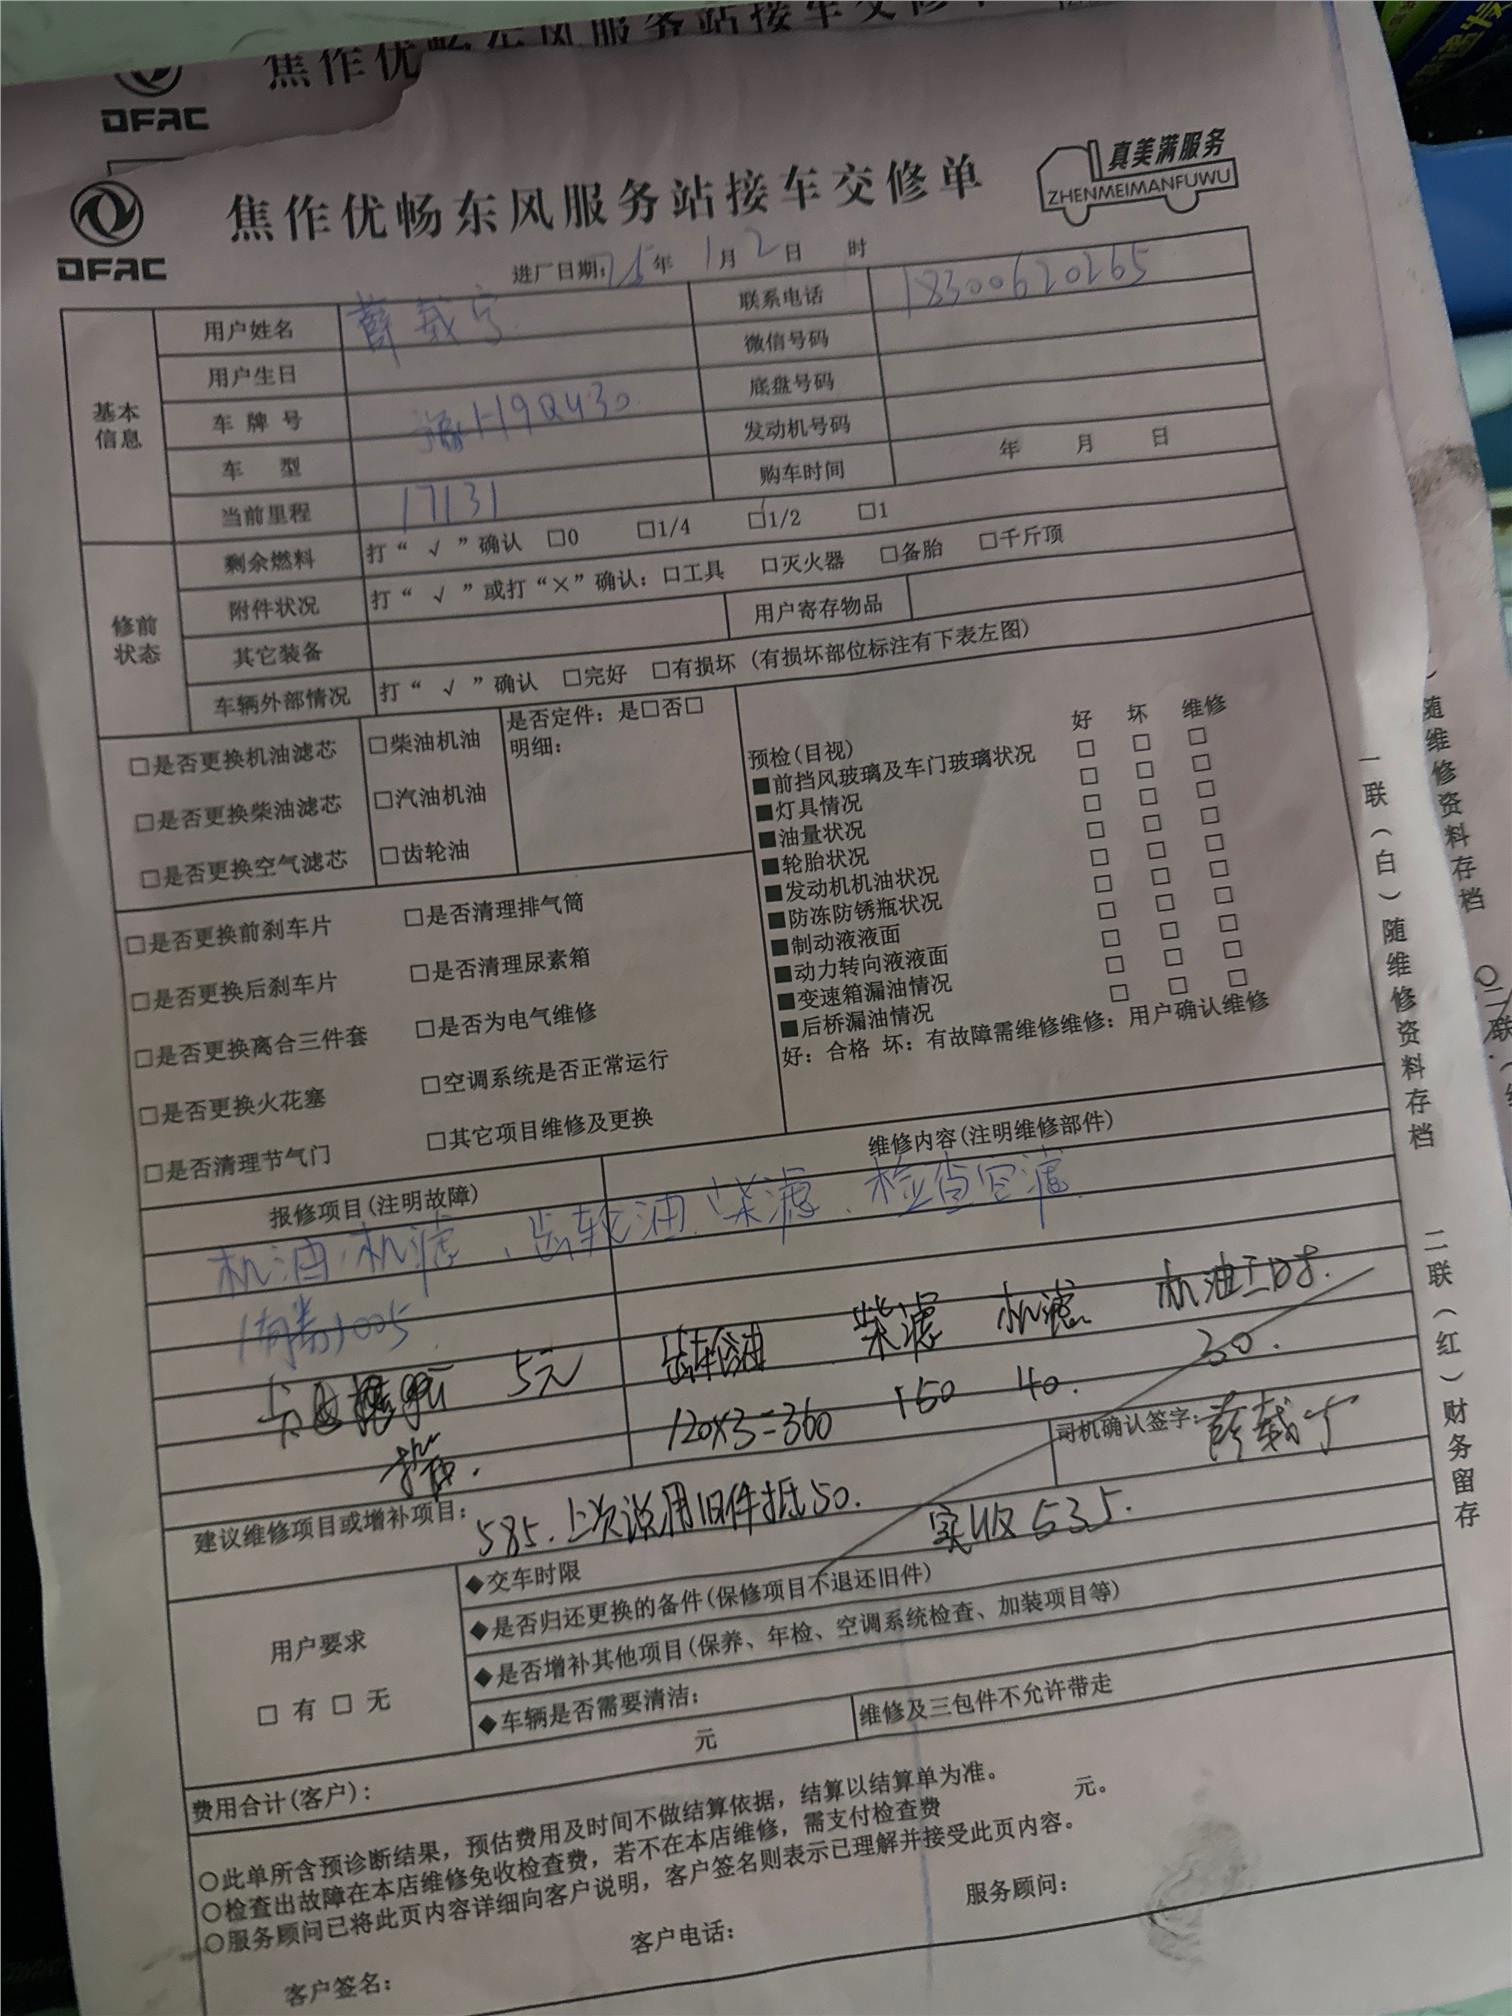 焦作优畅东风服务站接车交修单
DFAC
DFAC
焦作优畅东风服务站接车交修单
真美满服务
ZHENMEIMANFUWU
进厂日期: 25 年 1 月 2 日 时
基本信息
用户姓名 薛载宁 联系电话 18300620265
用户生日 微信号码
车牌号 豫H9QU30 底盘号码
车 型 发动机号码
当前里程 17131 购车时间 年 月 日
修前状态
剩余燃料 打“ √ ”确认 □0 □1/4 □1/2 □1
附件状况 打“ √ ”或打“×”确认: □工具 □灭火器 □备胎 □千斤顶
其它装备 用户寄存物品
车辆外部情况 打“ √ ”确认 □完好 □有损坏 (有损坏部位标注有下表左图)
□是否更换机油滤芯 □柴油机油
□是否更换柴油滤芯 □汽油机油
□是否更换空气滤芯 □齿轮油
是否定件: 是□否□
明细:
□是否更换前刹车片 □是否清理排气筒
□是否更换后刹车片 □是否清理尿素箱
□是否更换离合三件套 □是否为电气维修
□是否更换火花塞 □空调系统是否正常运行
□是否清理节气门 □其它项目维修及更换
好 坏 维修
预检(目视) □ □ □
■前挡风玻璃及车门玻璃状况 □ □ □
■灯具情况 □ □ □
■油量状况 □ □ □
■轮胎状况 □ □ □
■发动机机油状况 □ □ □
■防冻防锈瓶状况 □ □ □
■制动液液面 □ □ □
■动力转向液液面 □ □ □
■变速箱漏油情况 □ □ □
■后桥漏油情况
好: 合格 坏: 有故障需维修维修: 用户确认维修
报修项目(注明故障) 维修内容(注明维修部件)
机油、机滤、齿轮油、柴滤、检查空滤
1005
5元 齿轮油 柴滤 机滤 机油工时.
120×3=360 150 40. 30.
司机确认签字: 薛载宁
建议维修项目或增补项目: 585. 上次说用旧件抵50. 实收535.
用户要求
□ 有 □ 无
◆交车时限
◆是否归还更换的备件(保修项目不退还旧件)
◆是否增补其他项目(保养、年检、空调系统检查、加装项目等)
◆车辆是否需要清洁:
费用合计(客户): 元 维修及三包件不允许带走
○此单所含预诊断结果，预估费用及时间不做结算依据，结算以结算单为准。
○检查出故障在本店维修免收检查费，若不在本店维修，需支付检查费 元。
○服务顾问已将此页内容详细向客户说明，客户签名则表示已理解并接受此页内容。
客户签名: 客户电话: 服务顾问:
一联(白)随维修资料存档
二联(红)财务留存
随维修资料存档